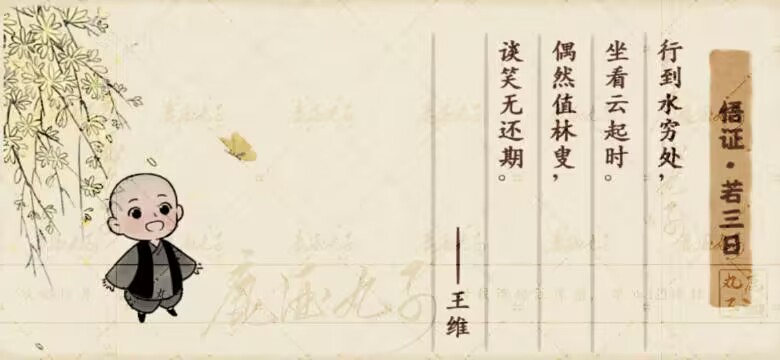 悟证·若三日
行到水穷处，
坐看云起时。
偶然值林叟，
谈笑无还期。
——王维